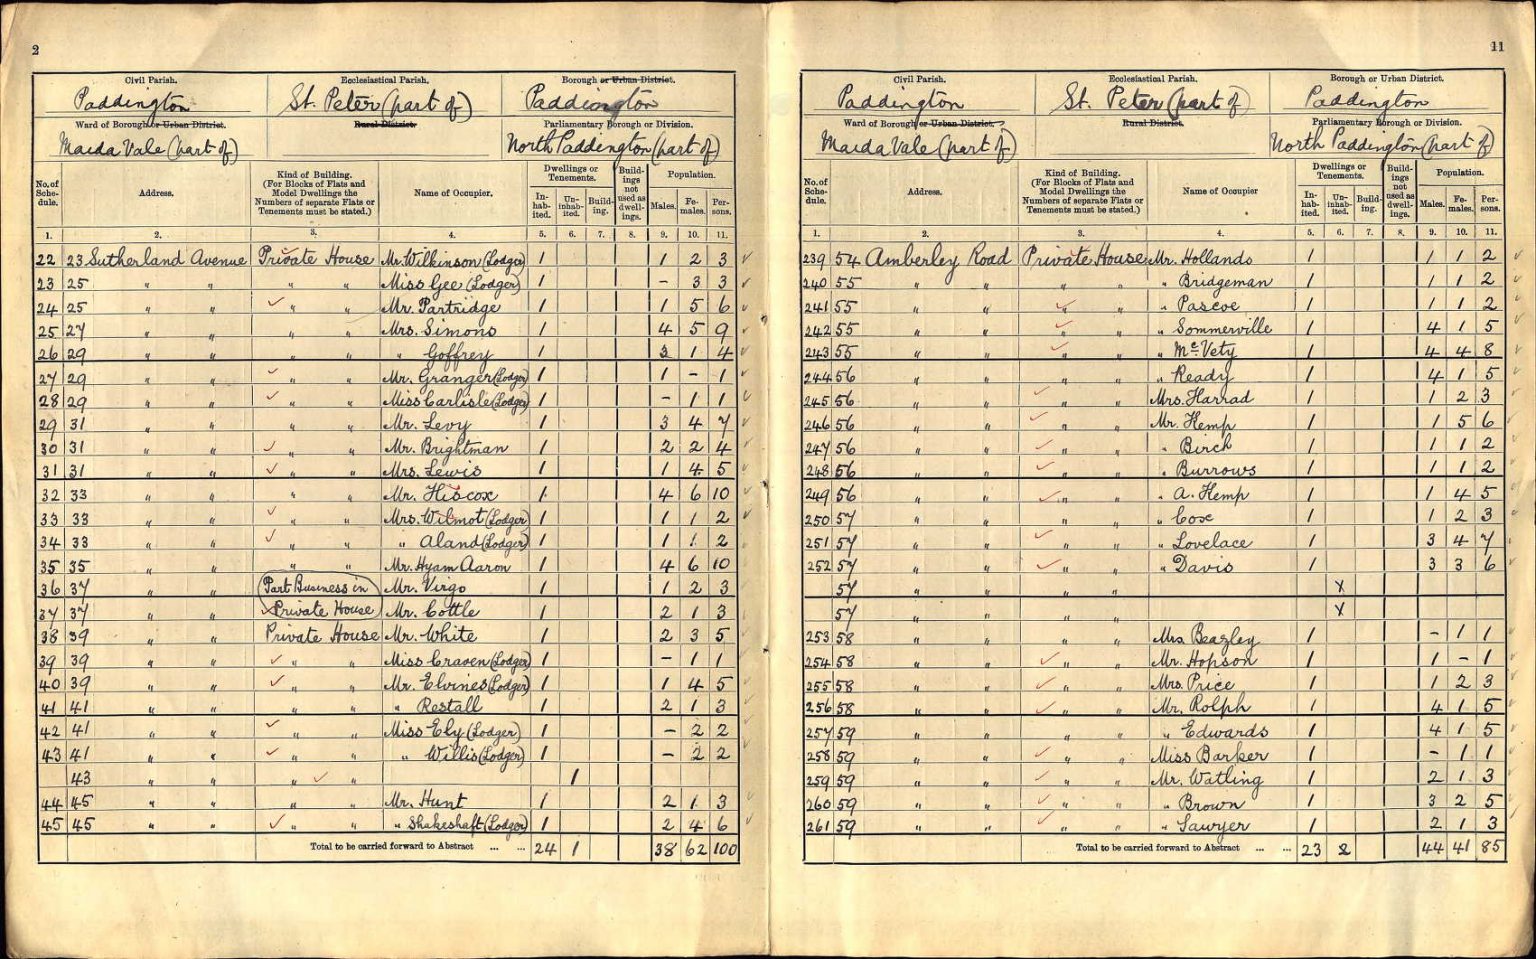 2
Civil Parish. Ecclesiastical Parish. Borough or Urban District.
Paddington St. Peter (part of) Paddington
Ward of Borough or Urban District. Rural District. Parliamentary Borough or Division.
Maida Vale (part of) North Paddington (part of)
No. of Schedule. Address. Kind of Building. (For Blocks of Flats and Model Dwellings the Numbers of separate Flats or Tenements must be stated.) Name of Occupier. Dwellings or Tenements. Inhabited. Uninhabited. Building. Buildings not used as dwellings. Population. Males. Females. Persons.
1. 2. 3. 4. 5. 6. 7. 8. 9. 10. 11.
22 23 Sutherland Avenue Private House Mr. Wilkinson (Lodger) 1 1 2 3
23 25 " " " " Miss Gee (Lodger) 1 - 3 3
24 25 " " " " Mr. Partridge 1 1 5 6
25 27 " " " " Mrs. Simons 1 4 5 9
26 29 " " " " " Goffrey 1 3 1 4
27 29 " " " " Mr. Granger (Lodger) 1 1 - 1
28 29 " " " " Miss Carlisle (Lodger) 1 - 1 1
29 31 " " " " Mr. Levy 1 3 4 7
30 31 " " " " Mr. Brightman 1 2 2 4
31 31 " " " " Mrs. Lewis 1 1 4 5
32 33 " " " " Mr. Hiscox 1 4 6 10
33 33 " " " " Mrs. Wilmot (Lodger) 1 1 1 2
34 33 " " " " " Aland (Lodger) 1 1 1 2
35 35 " " " " Mr. Hyam Aaron 1 4 6 10
36 37 " " Part Business in Mr. Virgo 1 1 2 3
37 37 " " Private House Mr. Cottle 1 2 1 3
38 39 " " Private House Mr. White 1 2 3 5
39 39 " " " " Miss Craven (Lodger) 1 - 1 1
40 39 " " " " Mr. Elvines (Lodger) 1 1 4 5
41 41 " " " " " Restall 1 2 1 3
42 41 " " " " Miss Ely (Lodger) 1 - 2 2
43 41 " " " " " Willis (Lodger) 1 - 2 2
43 " " " " 1
44 45 " " " " Mr. Hunt 1 2 1 3
45 45 " " " " " Shakeshaft (Lodger) 1 2 4 6
Total to be carried forward to Abstract ... ... 24 1 38 62 100
11
Civil Parish. Ecclesiastical Parish. Borough or Urban District.
Paddington St. Peter (part of) Paddington
Ward of Borough or Urban District. Rural District. Parliamentary Borough or Division.
Maida Vale (part of) North Paddington (part of)
No. of Schedule. Address. Kind of Building. (For Blocks of Flats and Model Dwellings the Numbers of separate Flats or Tenements must be stated.) Name of Occupier Dwellings or Tenements. Inhabited. Uninhabited. Building. Buildings not used as dwellings. Population. Males. Females. Persons.
1. 2. 3. 4. 5. 6. 7. 8. 9. 10. 11.
239 54 Amberley Road Private House Mr. Hollands 1 1 1 2
240 55 " " " " " Bridgeman 1 1 1 2
241 55 " " " " " Pascoe 1 1 1 2
242 55 " " " " " Sommerville 1 4 1 5
243 55 " " " " " McVety 1 4 4 8
244 56 " " " " " Ready 1 4 1 5
245 56 " " " " Mrs. Harrad 1 1 2 3
246 56 " " " " Mr. Hemp 1 1 5 6
247 56 " " " " " Birch 1 1 1 2
248 56 " " " " " Burrows 1 1 1 2
249 56 " " " " " A. Hemp 1 1 4 5
250 57 " " " " " Cox 1 1 2 3
251 57 " " " " " Lovelace 1 3 4 7
252 57 " " " " " Davis 1 3 3 6
57 " " " " X
57 " " " " X
253 58 " " " " Mrs Beazley 1 - 1 1
254 58 " " " " Mr. Hopson 1 1 - 1
255 58 " " " " Mrs. Price 1 1 2 3
256 58 " " " " Mr. Rolph 1 4 1 5
257 59 " " " " " Edwards 1 4 1 5
258 59 " " " " Miss Barker 1 - 1 1
259 59 " " " " Mr. Watling 1 2 1 3
260 59 " " " " " Brown 1 3 2 5
261 59 " " " " " Sawyer 1 2 1 3
Total to be carried forward to Abstract ... ... 23 2 44 41 85